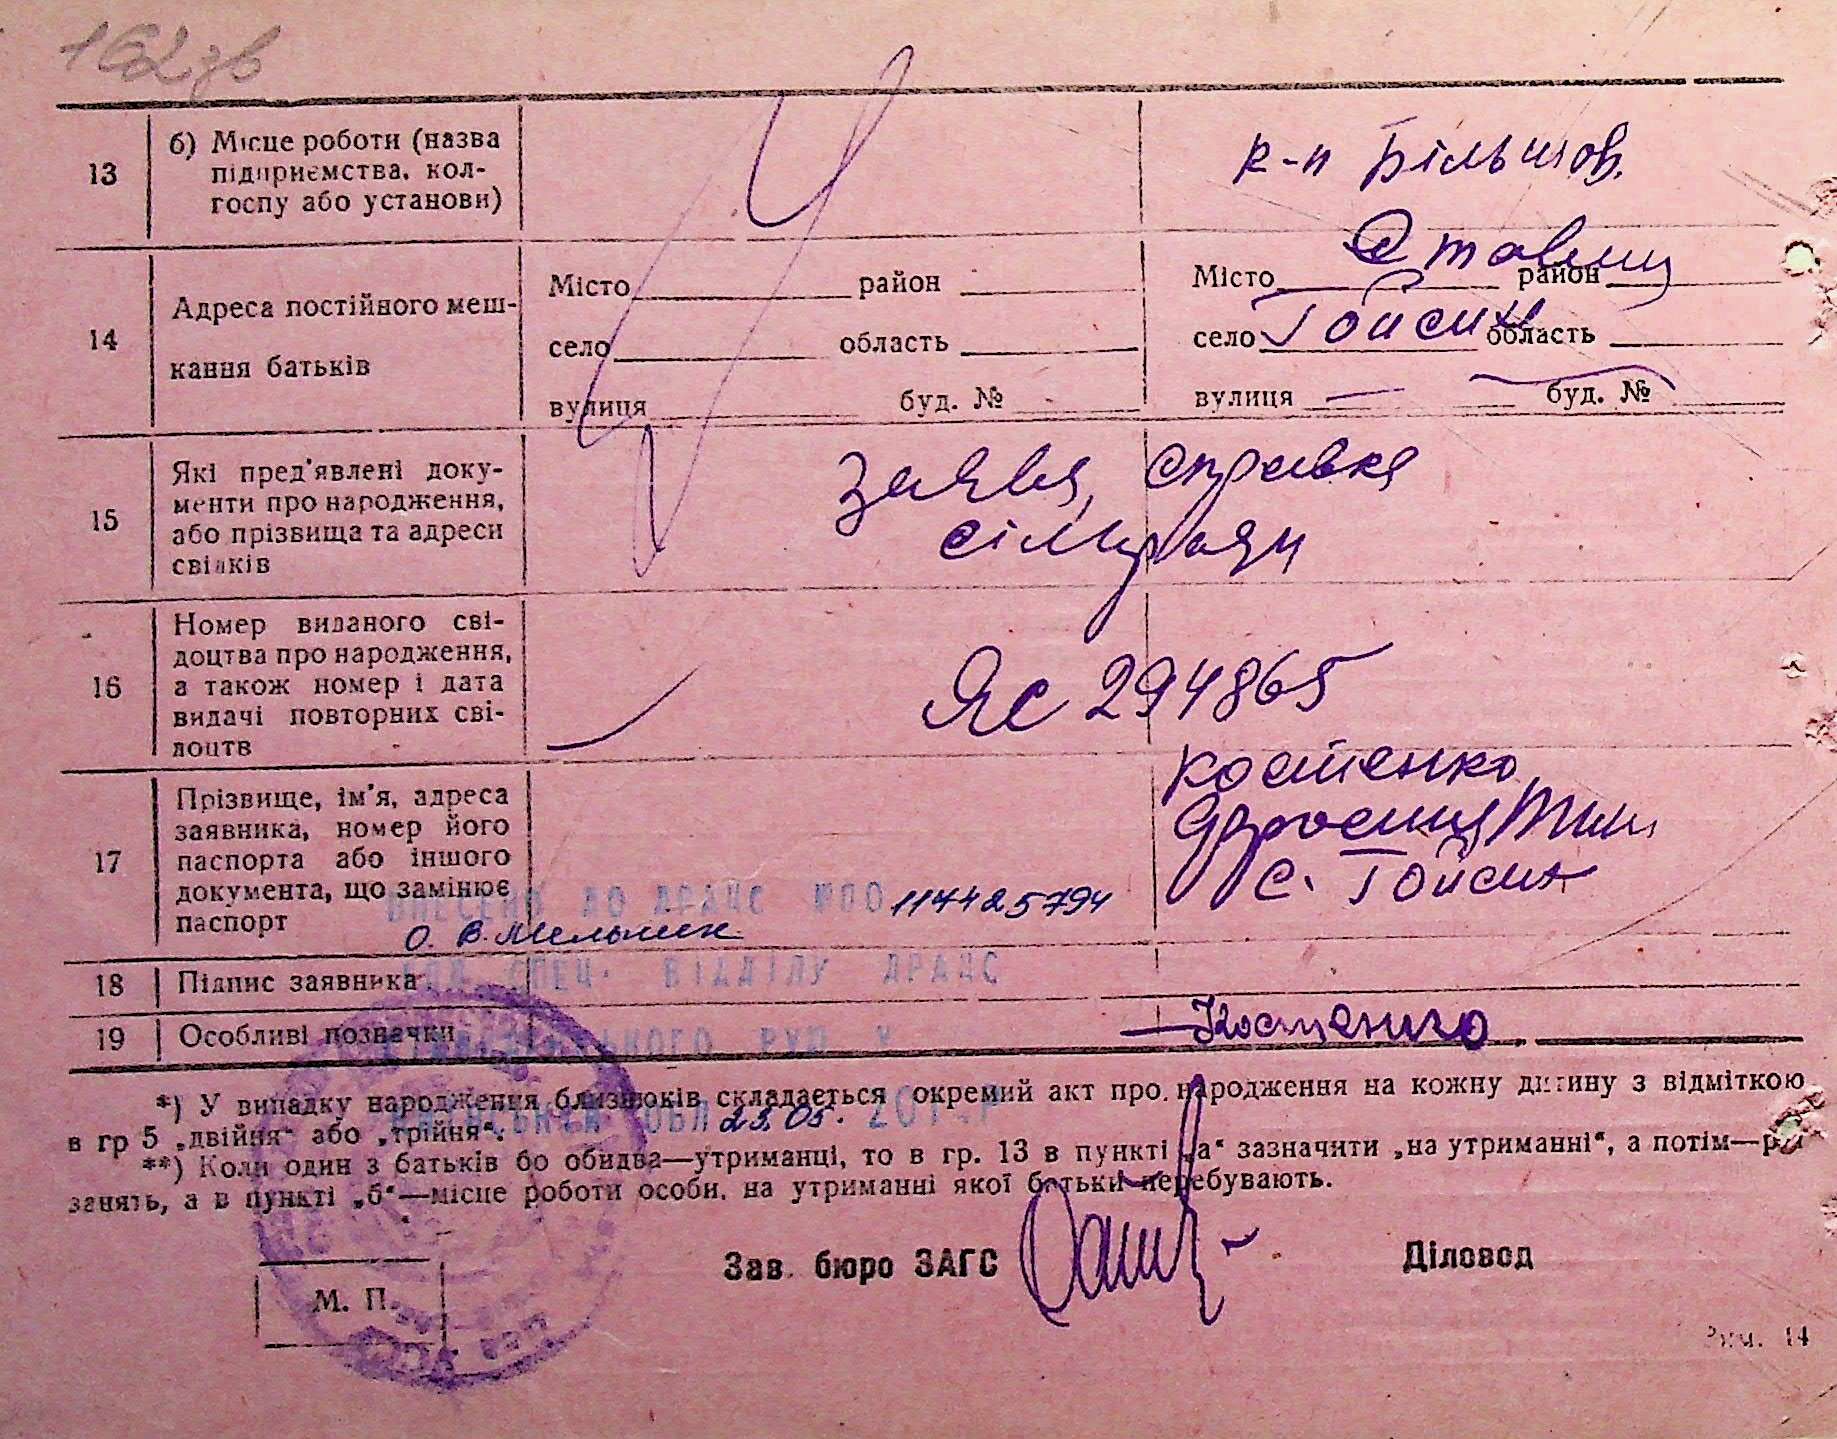 162зв
13
б) Місце роботи (назва
підприємства, кол-
госпу або установи)
к-п Більшов.
14
Адреса постійного меш-
кання батьків
Місто район
село область
вулиця буд. №
Місто район
село Тойсин область
вулиця — буд. №
15
Які пред'явлені доку-
менти про народження,
або прізвища та адреси
свідків
заява, справка
сільради
16
Номер виданого сві-
доцтва про народження,
а також номер і дата
видачі повторних сві-
доцтв
ЯС 294865
17
Прізвище, ім'я, адреса
заявника, номер його
паспорта або іншого
документа, що замінює
паспорт
Костенко
с. Тойсин
ВНЕСЕНО ДО ДРАЦС 1174425794
О. В. Мельник
СПЕЦ. ВІДДІЛУ ДРАЦС
18 Підпис заявника
19 Особливі позначки
Костенко
РУЮ У
ОБЛ 23.05. 201 Р
*) У випадку народження близнюків складається окремий акт про народження на кожну дитину з відміткою
в гр 5 „двійня“ або „трійня“.
**) Коли один з батьків бо обидва—утриманці, то в гр. 13 в пункті „а“ зазначити „на утриманні“, а потім—рід
занять, а в пункті „б“—місце роботи особи, на утриманні якої батьки перебувають.
Зав. бюро ЗАГС
Діловод
М. П.
14